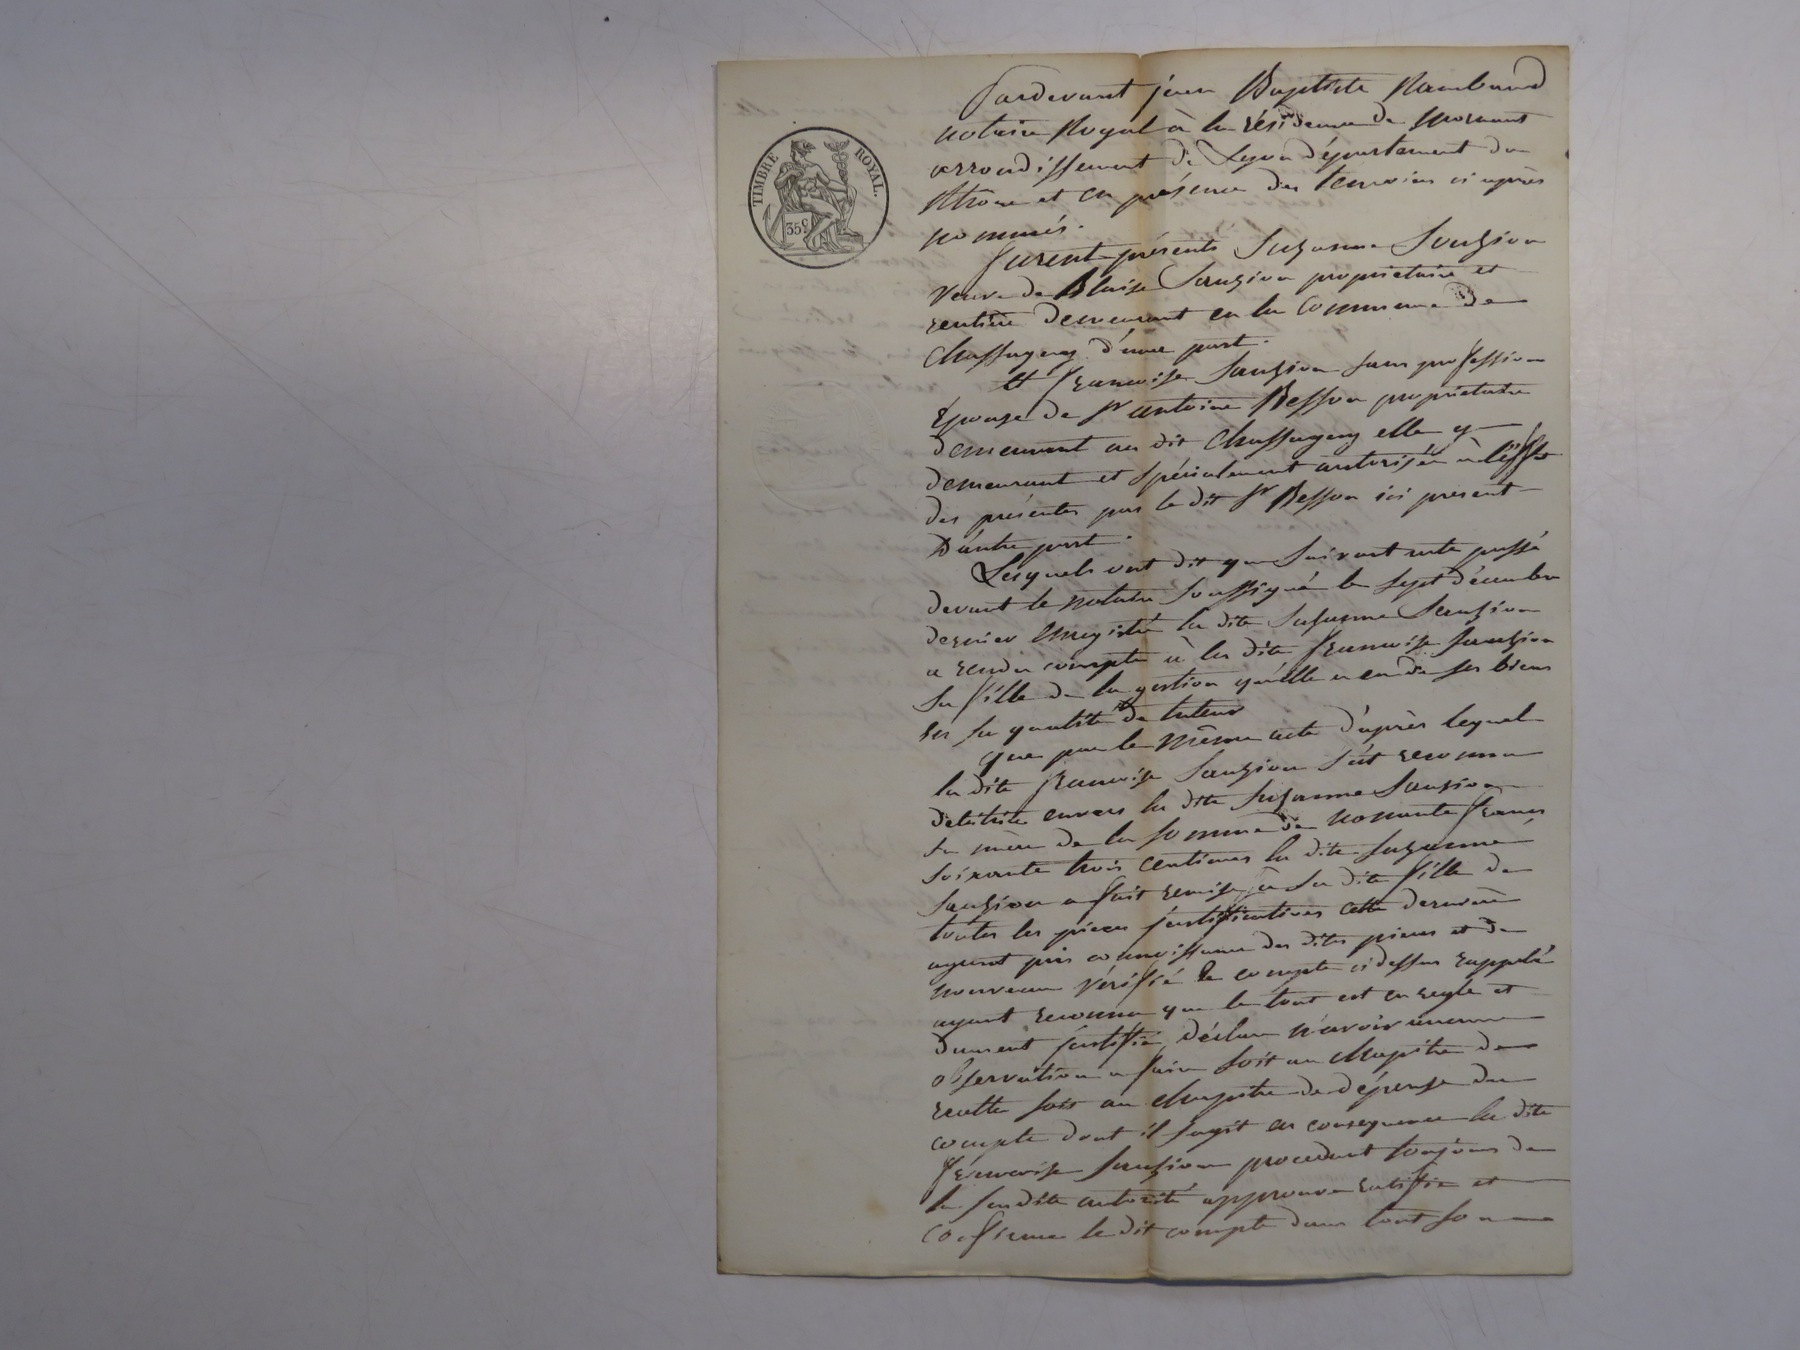 TIMBRE ROYAL.
35 c
Pardevant jean Baptiste Rambaud
notaire Royal à la résidence de Mornant
arrondissement de Lyon département du
Rhone et en présence des temoins ci après
nommés.
furent présents Suzanne Sauzion
veuve de Blaise Sauzion propriétaire et
rentière demeurant en la Commune de
Chassagny d'une part.
Et francoise Sauzion sans profession
Epouse de Sr antoine Besson propriétaire
demeurant au dit Chassagny elle y
demeurant et spécialement autorisée à l'effet
des présentes par le dit Sr Besson ici present
D'autre part.
Lesquels ont dit que suivant acte passé
devant le notaire soussigné le sept décembre
dernier enregistré la dite Suzanne Sauzion
a rendu compte à la dite francoise Sauzion
sa fille de la gestion qu'elle a eu de ses biens
en sa qualité de tuteur
que par le même acte d'après lequel
la dite francoise Sauzion s'est reconnu
debitrice envers la dite Suzanne Sauzion
sa mère de la somme de nonante francs
soixante trois centimes la dite Suzanne
Sauzion a fait remise à sa dite fille de
toutes les pièces justificatives cette dernière
ayant pris connoissance des dites pieces et de
nouveau vérifié le compte ci dessus rappelé
ayant reconnu que le tout est en regle et
dument justifié, déclare n'avoir aucune
observation a faire soit au chapitre de
recette soit au chapitre de dépense du
compte dont il sagit en consequence la dite
francoise Sauzion procedant toujours de
la susdite autorité approuve ratifie et
confirme le dit compte dans tout son